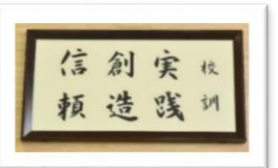 校訓
実践
創造
信頼